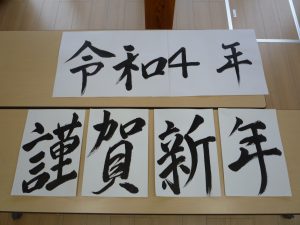 令和4年
謹賀新年